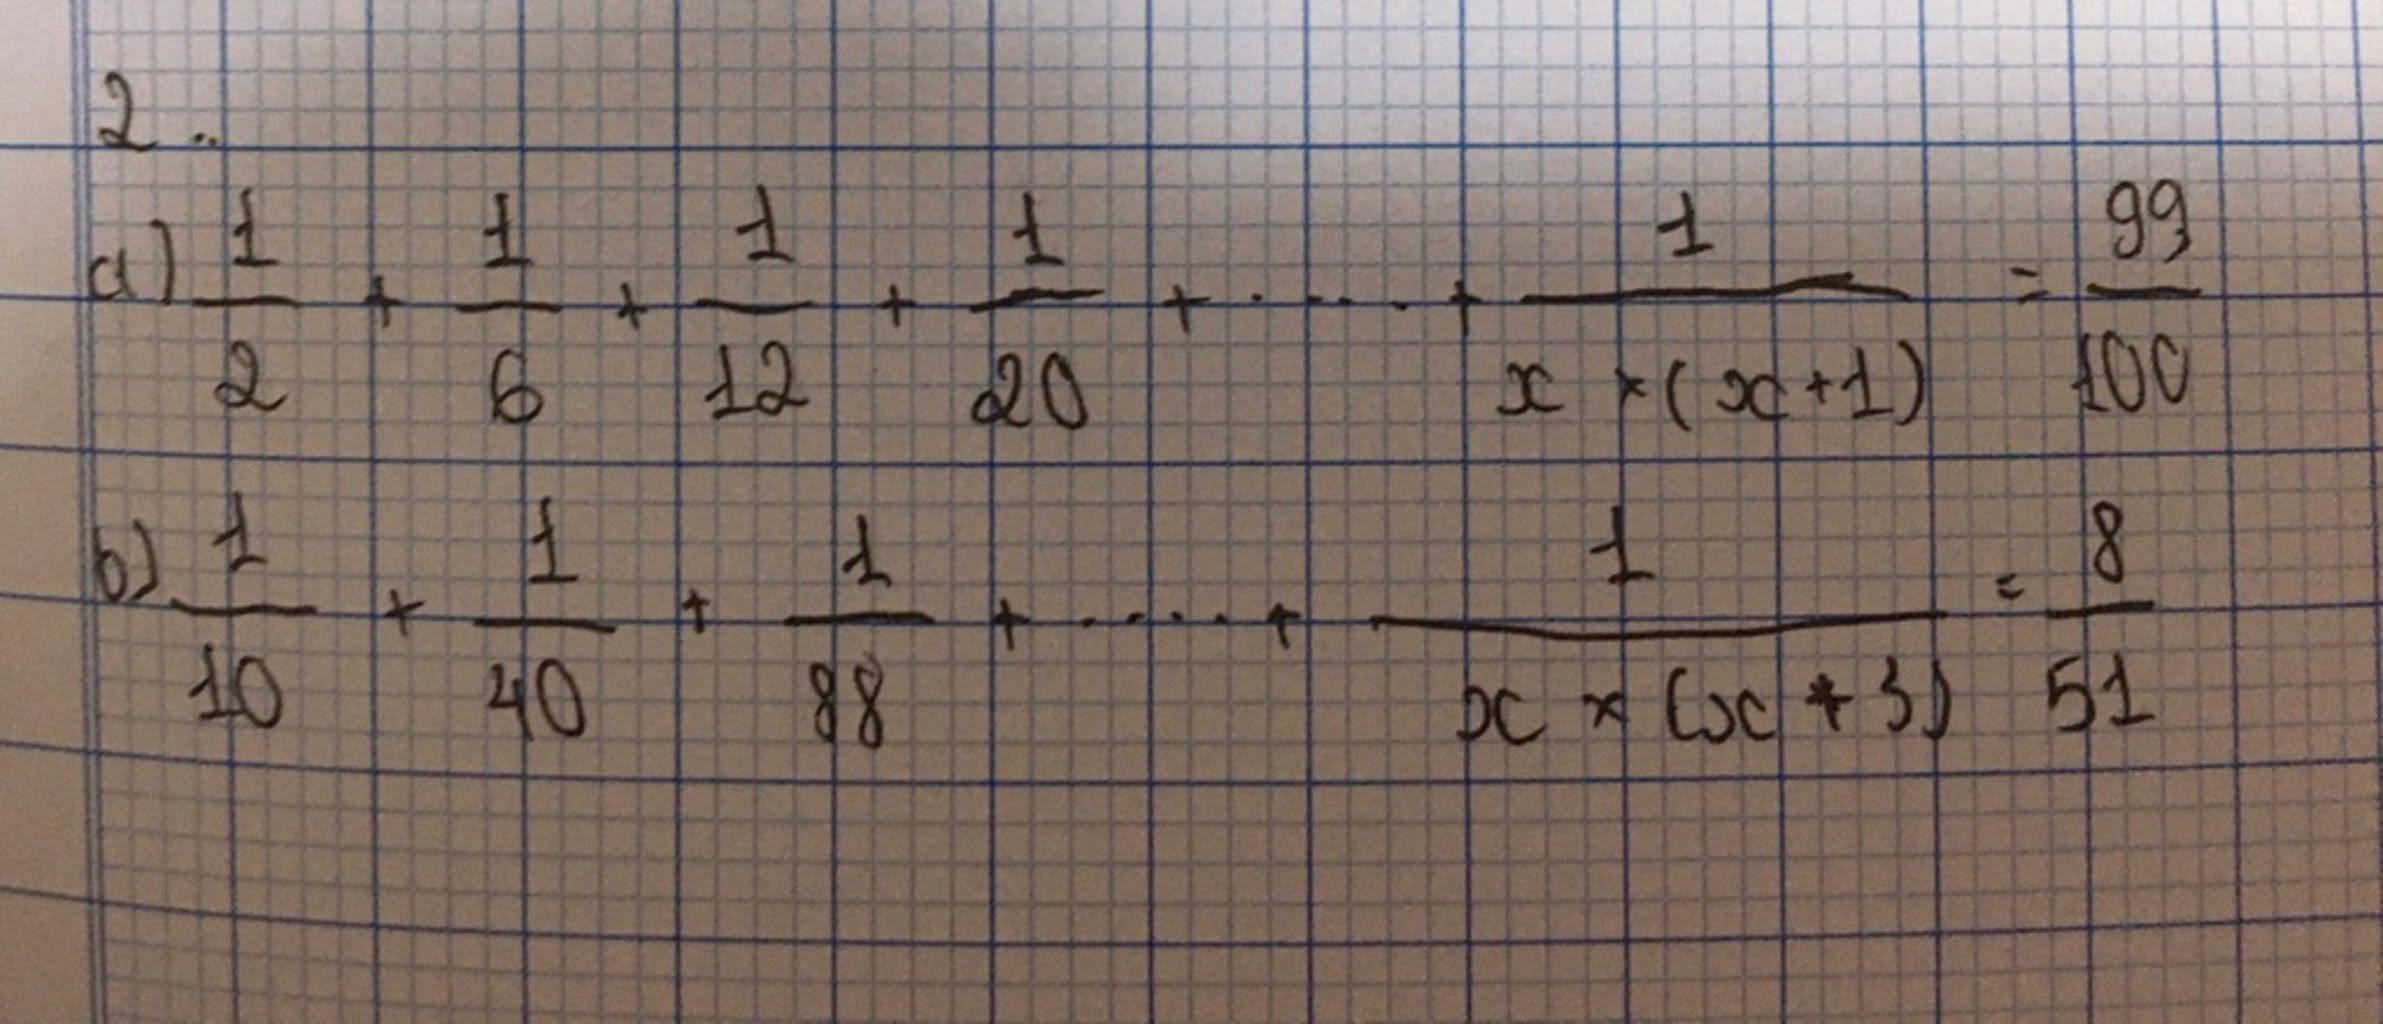 2..
a) 1/2 + 1/6 + 1/12 + 1/20 + ..... + 1/(x × (x + 1)) = 99/100
b) 1/10 + 1/40 + 1/88 + ..... + 1/(x × (x + 3)) = 8/51